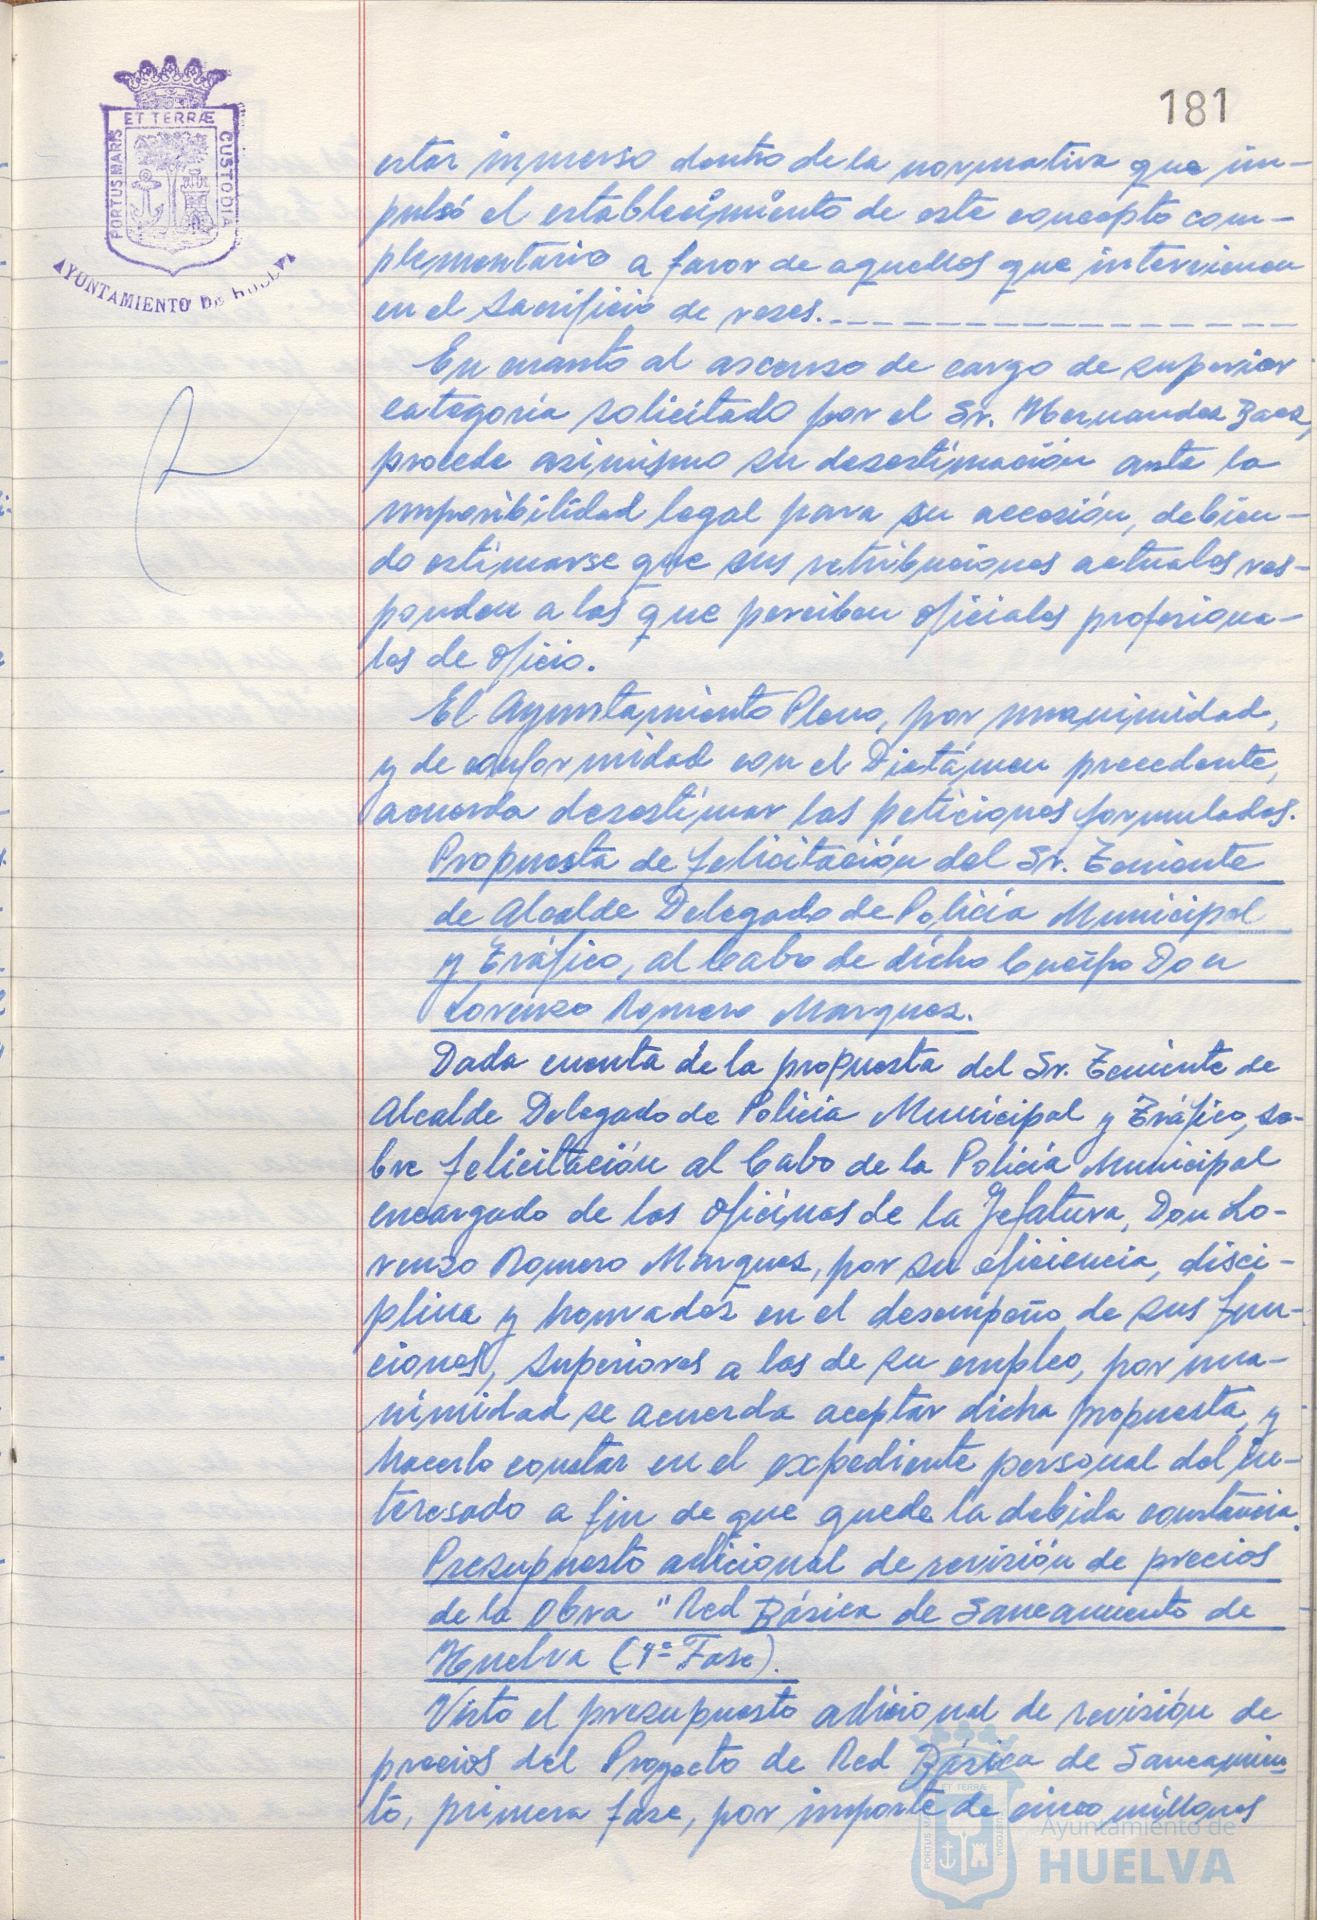 181
ET TERRÆ
PORTUS MARIS
CUSTODIA
AYUNTAMIENTO DE HUELVA
estar inmerso dentro de la normativa que im-
pulsó el establecimiento de este concepto com-
plementario a favor de aquellos que intervienen
en el sacrificio de reses.
En cuanto al ascenso de cargo de superior
categoría solicitado por el Sr. Hernandez Baez,
procede asimismo su desestimación ante la
imposibilidad legal para su accesión, debien-
do estimarse que sus retribuciones actuales res-
ponden a las que perciben oficiales profesiona-
les de oficio.
El Ayuntamiento Pleno, por unanimidad,
y de conformidad con el Dictámen precedente,
acuerda desestimar las peticiones formuladas.
Propuesta de felicitación del Sr. Teniente
de Alcalde Delegado de Policía Municipal
y Tráfico, al Cabo de dicho Cuerpo Don
Lorenzo Romero Marquez.
Dada cuenta de la propuesta del Sr. Teniente de
Alcalde Delegado de Policía Municipal y Tráfico, so-
bre felicitación al Cabo de la Policía Municipal
encargado de las Oficinas de la Jefatura, Don Lo-
renzo Romero Marquez, por su eficiencia, disci-
plina y honradez en el desempeño de sus fun-
ciones, superiores a las de su empleo, por una-
nimidad se acuerda aceptar dicha propuesta, y
hacerlo constar en el expediente personal del in-
teresado a fin de que quede la debida constancia.
Presupuesto adicional de revisión de precios
de la Obra "Red Básica de Saneamiento de
Huelva (1ª Fase).
Visto el presupuesto adicional de revisión de
precios del Proyecto de Red Básica de Saneamien-
to, primera fase, por importe de cinco millones
ET TERRÆ
PORTUS MARIS
CUSTODIA
Ayuntamiento de
HUELVA